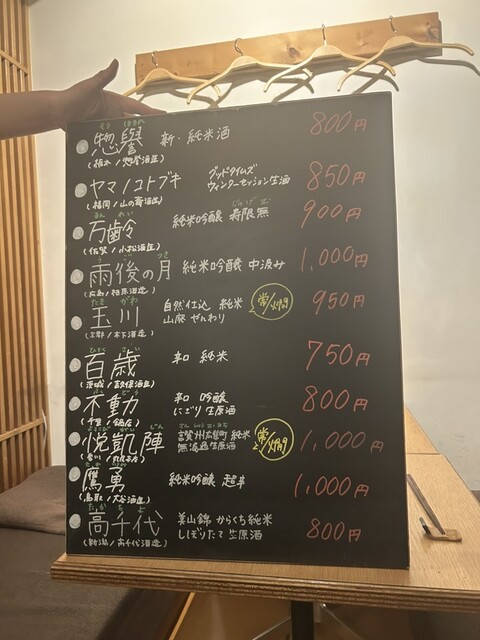 そう ほまれ
惣誉 新・純米酒 800円
(栃木/惣誉酒造)
ヤマノコトブキ グッドタイムズ 850円
(福岡/山の壽酒造) ウィンターセッション生酒
まん れい
万齢 純米吟醸 寿限無 900円
(佐賀/小松酒造)
う ご つき
雨後の月 純米吟醸 中汲み 1,000円
(広島/相原酒造)
たま がわ
玉川 自然仕込 純米 常/燗 950円
(京都/木下酒造) 山廃
ひゃく さい
百歳 辛口 純米 750円
(茨城/
不動 辛口 吟醸 800円
(千葉/鍋店) にごり生原酒
悦凱陣 純米 常/燗 1,000円
(香川/ 無濾過生原酒
たか いさみ
鷹勇 純米吟醸 超辛 1,000円
(鳥取/大谷酒造)
たか ち よ
高千代 美山錦 からくち純米 800円
(新潟/高千代酒造) しぼりたて生原酒